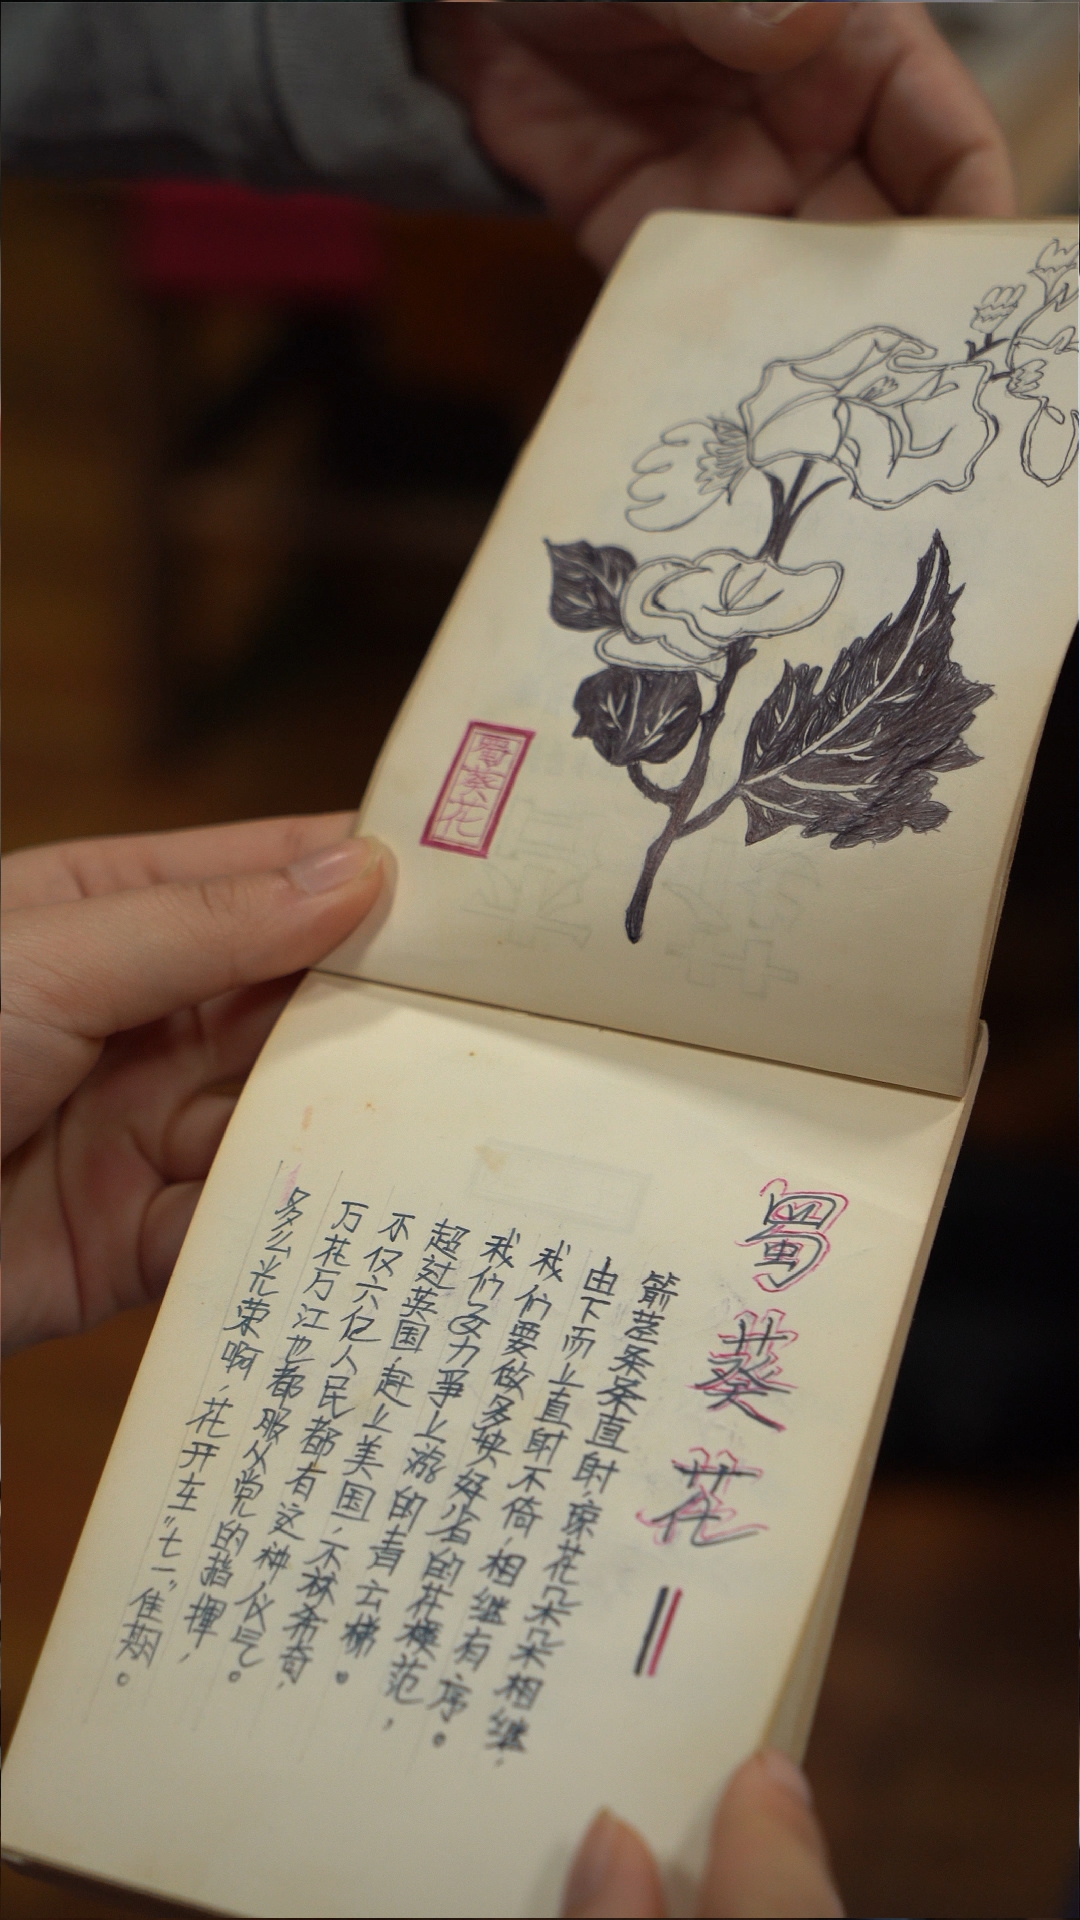 蜀葵花
蜀葵花
箭茎条条直射，琼花朵朵相继，
由下而上直射不倚，相继有序。
我们要做多快好省的花模范，
我们力争上游的青云梯。
超过英国，赶上美国，不希奇，
不仅六亿人民都有这种气。
万花万江也都服从党的指挥，
多么光荣啊，花开在“七一”佳期。